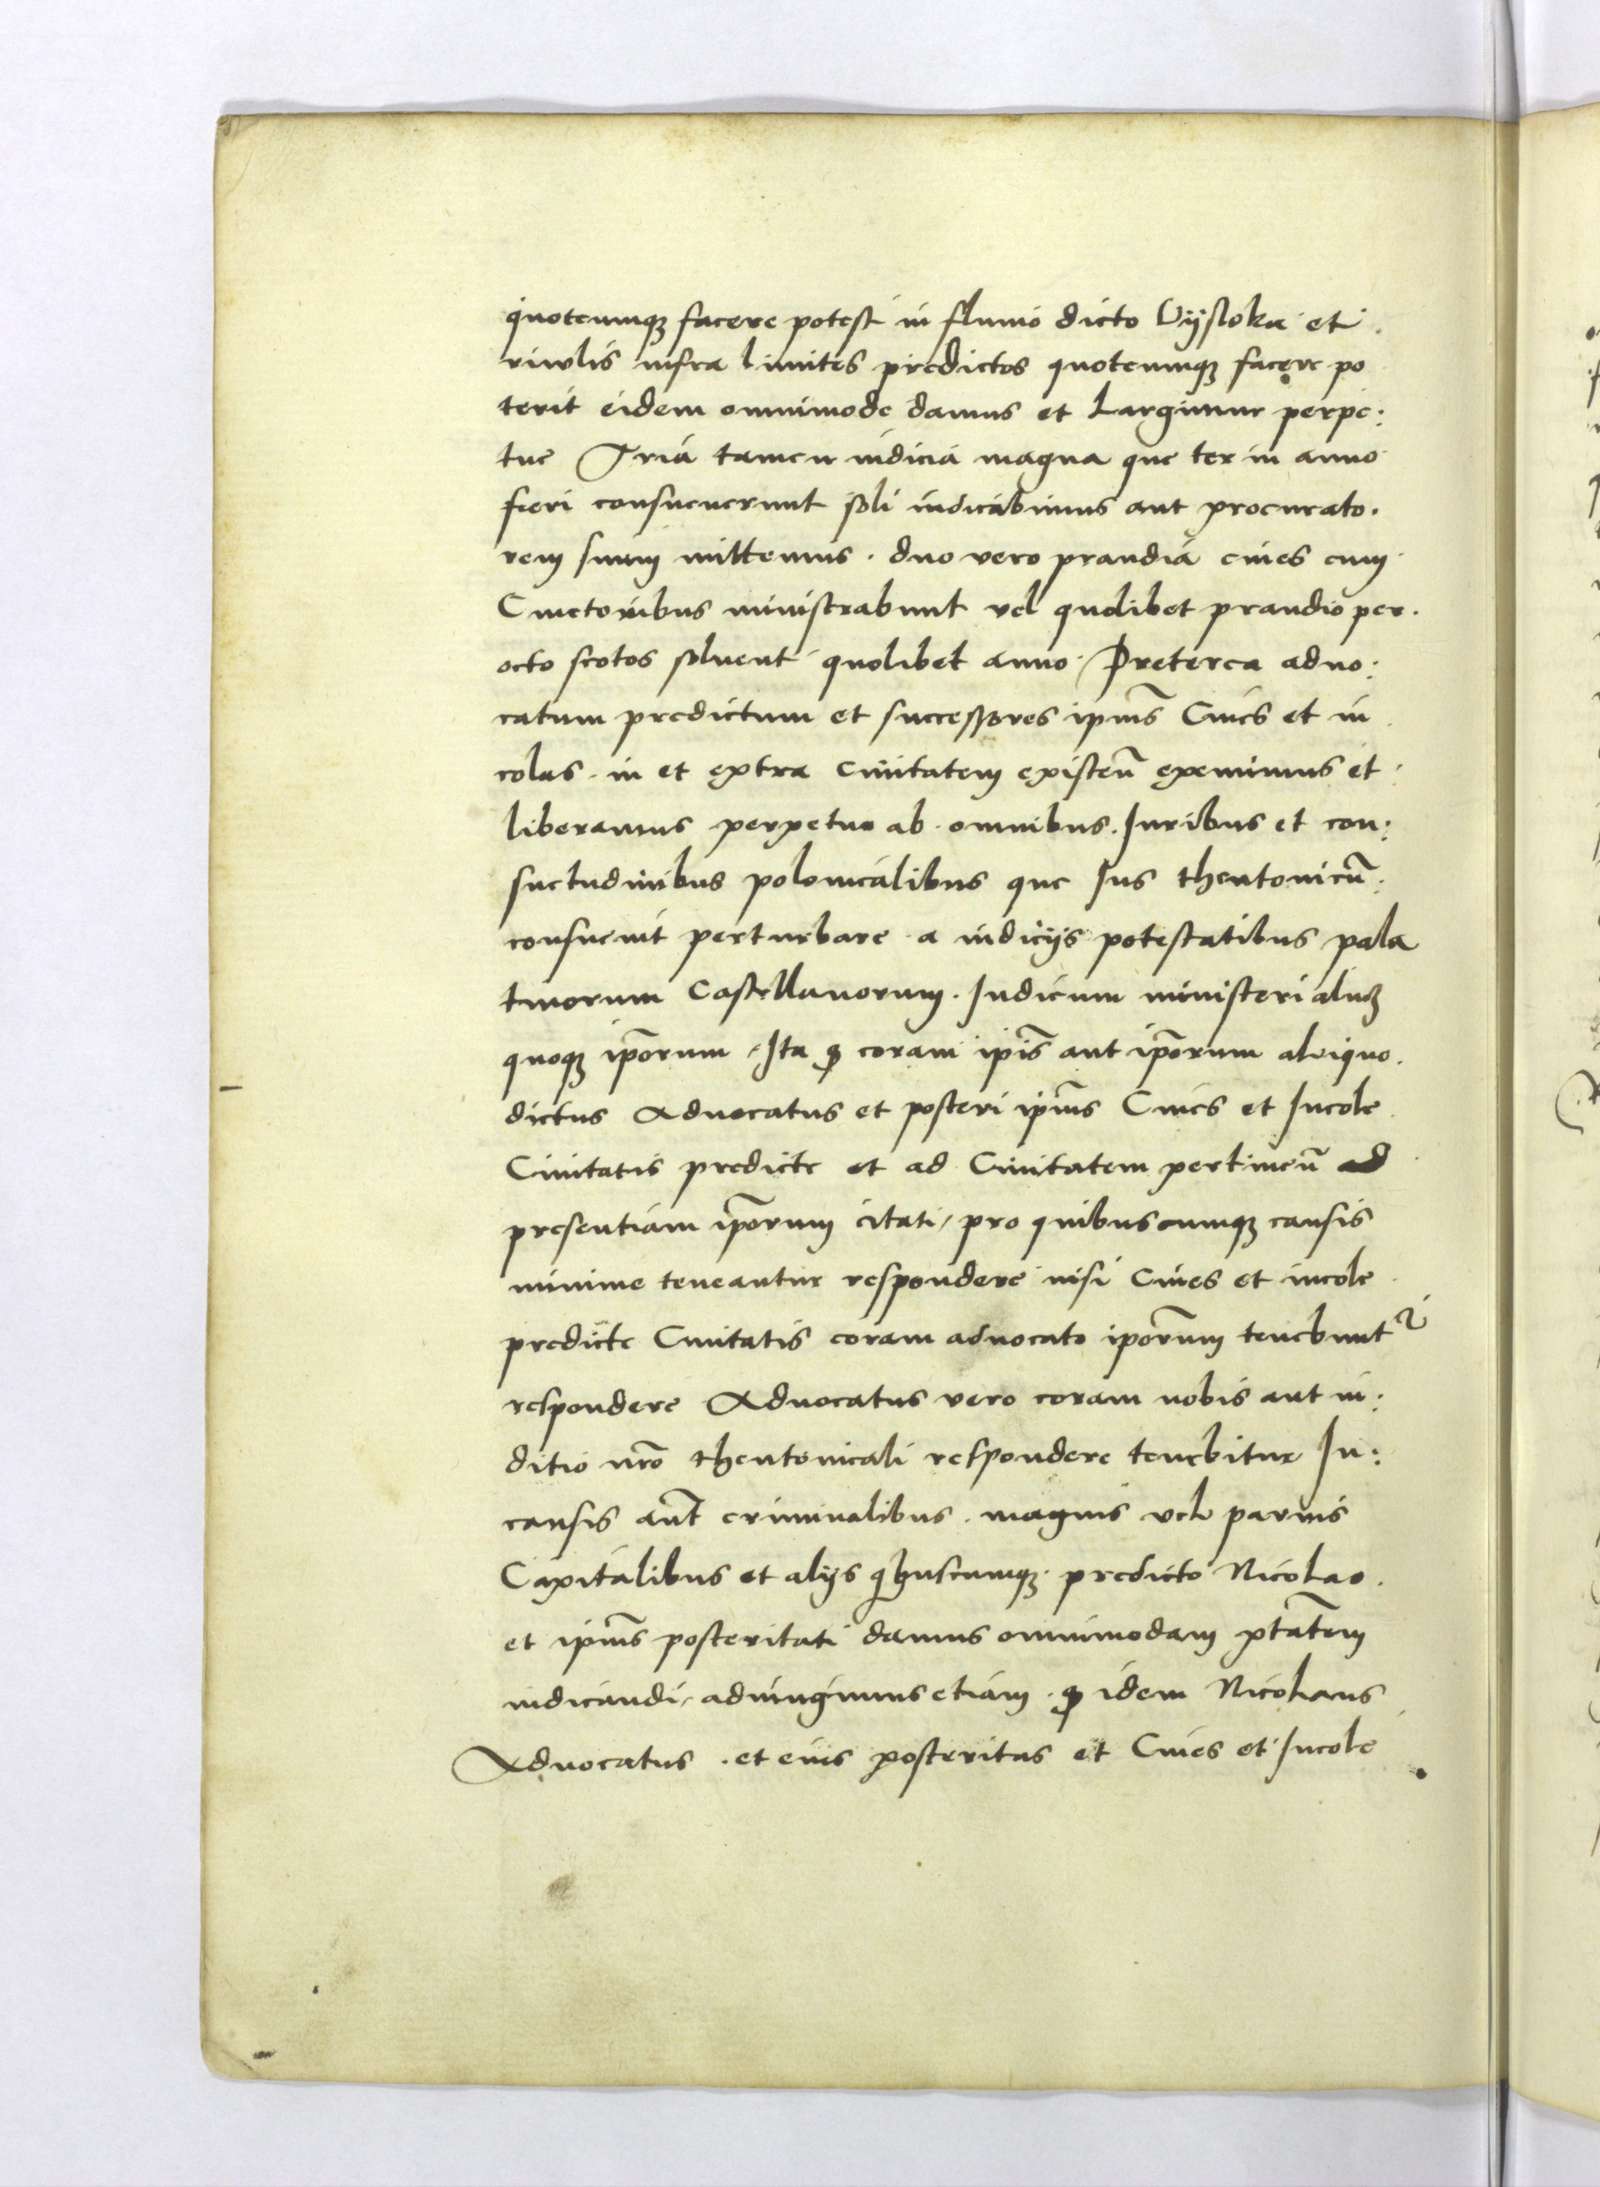 quotcumq3 facere potest in fluuio dicto Vijsloka et
riwlis infra limites predictos quotcumq3 facere po
terit eidem omnimode damus et Largimur perpe:
tue Tria tamen iudicia magna que ter in anno
fieri consueuerunt soli iudicabimus aut procurato.
rem suum mittemus . duo vero prandia ciues cum
Cmetonibus ministrabunt vel quolibet prandio per.
octo scotos soluent quolibet anno. Preterea aduo:
catum predictum et successores ipius̄ Ciues et in
colas . in et extra ciuitatem existeñ eximimus et
liberamus perpetuo ab omnibus. Iuribus et con:
suetudinibus polonicalibus que Ius theutonicū.
consueuit perturbare a iudicijs potestatibus pala
tinorum Castellanorum. Iudicum ministerialiu3
quoq3 ip̄orum . Ita ꝙ coram ip̄is aut ip̄orum aliquo.
dictus Aduocatus et posteri ipiūs Ciues et Incole
Ciuitatis predicte et ad Ciuitatem pertineñ ad
presentiam ip̄orum citati, pro quibuscumq3 causis
minime teneantur respondere nisi Ciues et incole
predicte Ciuitatis coram aduocato ipōrum tenebunt᷑
respondere Aduocatus vero coram nobis aut iu:
ditio nr̄o theutonicali respondere tenebitur In:
causis aūt criminalibus . magnis vel paruis
Capitalibus et alijs qbuscumq3. predicto Nicolao.
et ipiūs posteritati damus omnimodam ptātem
iudicandi, adiungimus etiam . ꝙ idem Nicolaus
Aduocatus . et eius posteritas et Ciues et Incole